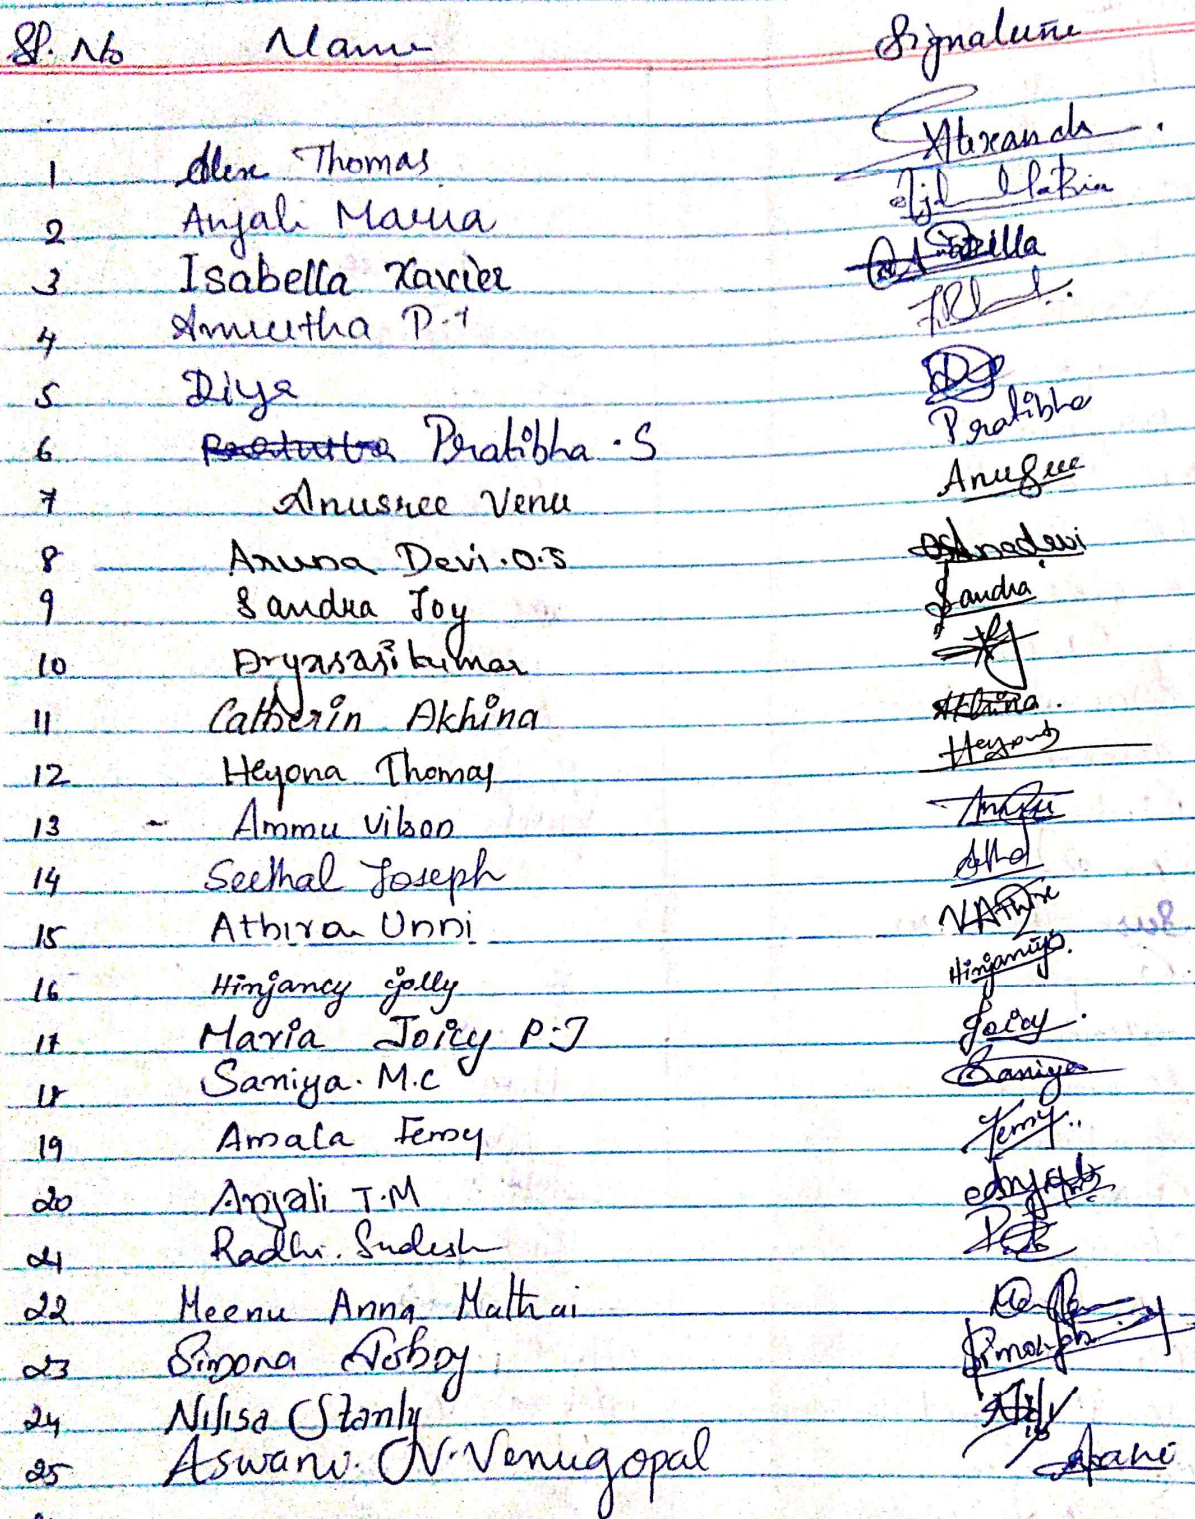 Sl. No Name Signature
1 Alex Thomas Alexand
2 Anjali Maria
3 Isabella Xavier
4 Amrutha P.T
5 Diya
6 Pratibha . S Pratibha
7 Anusree Venu Anusree
8 Aruna Devi.O.S
9 Sandra Joy Sandra
10 Aryasasikumar
11 Catherin Akhina Akhina.
12 Heyona Thomas Heyona
13 - Ammu Vilson Ammu
14 Seethal Joseph
15 Athira Unni
16 Hinjancy Jolly
17 Maria Joicy P.J Joicy.
18 Saniya. M.C Saniya
19 Amala Femy Femy..
20 Anjali T.M
21 Radhi. Sudesh
22 Meenu Anna Mathai
23 Simona
24 Nilisa Stanly
25 Aswani. N. Venugopal